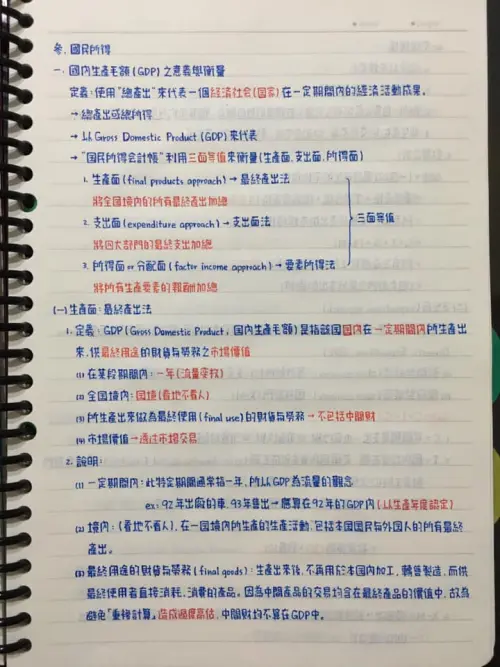 參. 國民所得
一. 國內生產毛額(GDP)之意義與衡量
定義:使用"總產出"來代表一個經濟社會(國家)在一定期間內的經濟活動成果。
→總產出或總所得
→以Gross Domestic Product(GDP)來代表
→"國民所得會計帳"利用三面等值來衡量(生產面、支出面、所得面)
1. 生產面(final products approach)→最終產出法
將全國境內的所有最終產出加總
2. 支出面(expenditure approach)→支出面法
將四大部門的最終支出加總
三面等值
3. 所得面or分配面(factor income approach)→要素所得法
將所有生產要素的報酬加總
(一)生產面:最終產出法
1. 定義:GDP(Gross Domestic Product,國內生產毛額)是指該國國內在一定期間內所生產出
來,供最終用途的財貨與勞務之市場價值
(1) 在某段期間內:一年(流量變數)
(2) 全國境內:國境(看地不看人)
(3) 所生產出來做為最終使用(final use)的財貨與勞務→不包括中間財
(4) 市場價值→透過市場交易
2. 說明:
(1) 一定期間內:此特定期間通常指一年,所以GDP為流量的觀念
ex:92年出廠的車,93年售出→應算在92年的GDP內(以生產年度認定)
(2) 境內:(看地不看人),在一國境內所生產的生產活動,包括本國國民與外國人的所有最終
產出。
(3) 最終用途的財貨與勞務(final goods):生產出來後,不再用於本國內加工,轉售製造,而供
最終使用者直接消耗、消費的產品。因為中間產品的交易均含在最終產品的價值中,故為
避免「重複計算」造成過度高估,中間財均不算在GDP中。